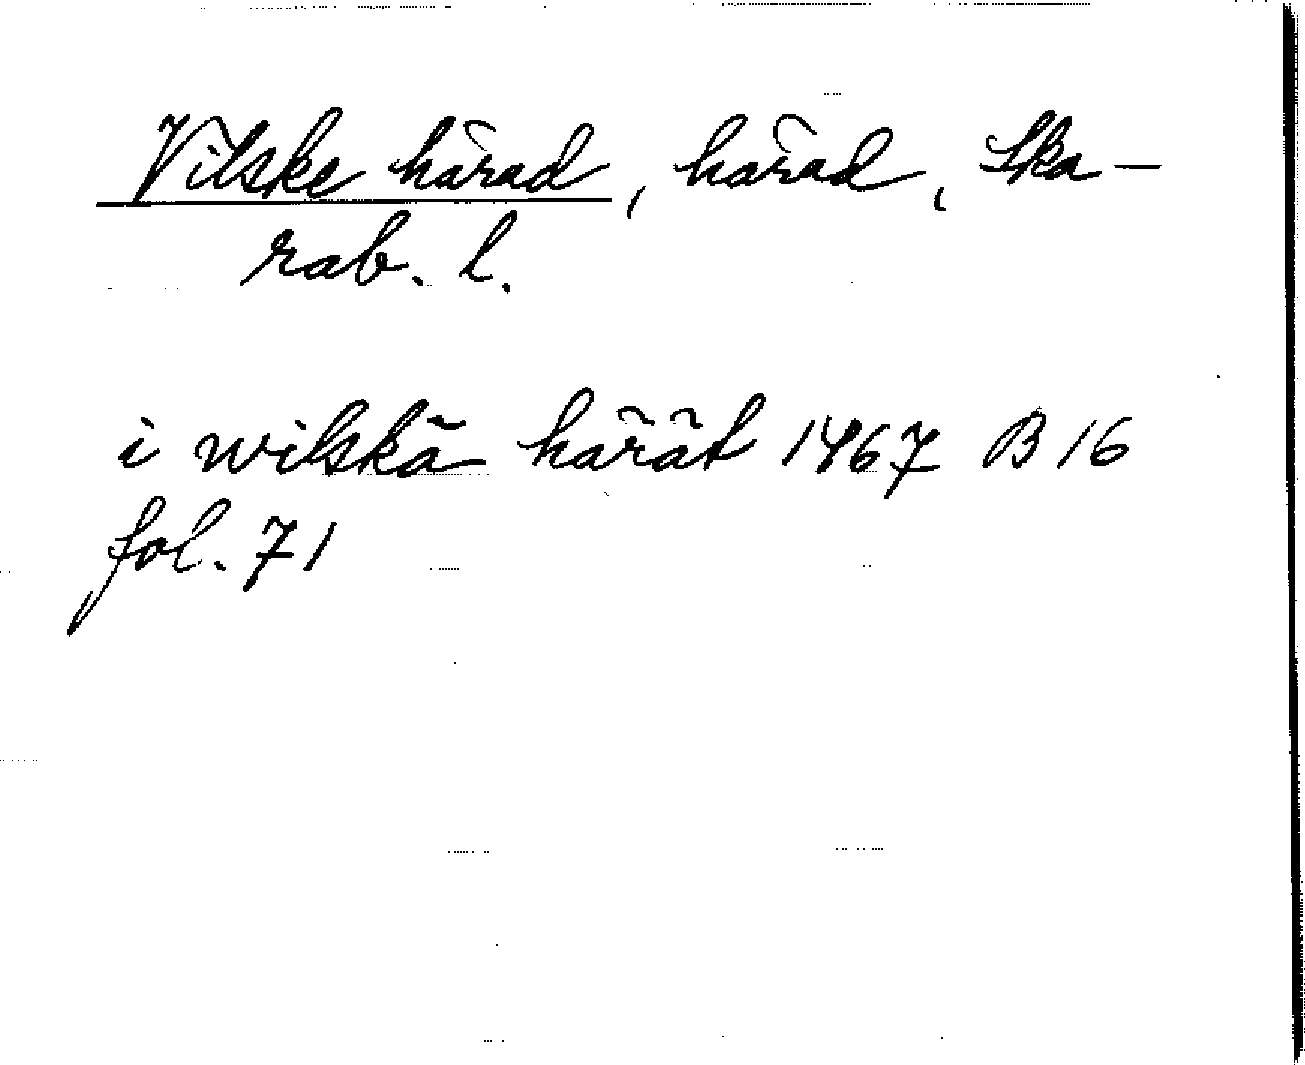 Vilske härad, härad, Ska-
rab. l.
i wilskä häråt 1467 B 16
fol. 71